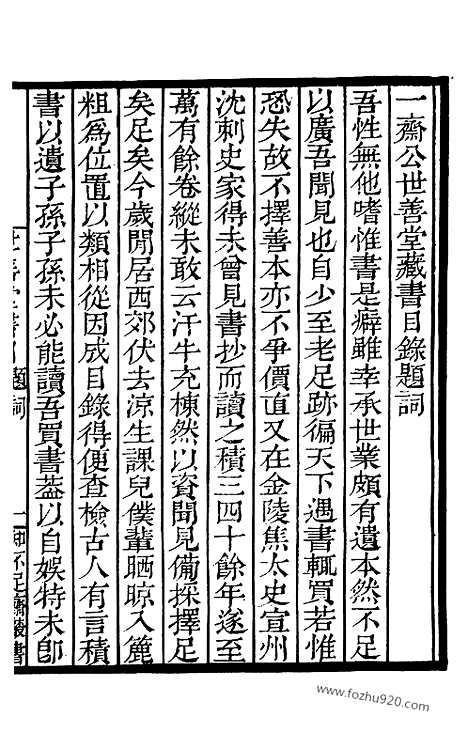 一齋公世善堂藏書目錄題詞
吾性無他嗜惟書是癖雖幸承世業頗有遺本然不足
以廣吾聞見也自少至老足跡徧天下遇書輒買若惟
恐失故不擇善本亦不爭價直又在金陵焦太史宣州
沈刺史家得未曾見書抄而讀之積三四十餘年遂至
萬有餘卷縱未敢云汗牛充棟然以資聞見備採擇足
矣足矣今歲閒居西郊伏去涼生課兒僕輩晒晾入簏
粗爲位置以類相從因成目錄得便查檢古人有言積
書以遺子孫子孫未必能讀吾買書葢以自娛特未卽
題詞
一
知不足齋叢書
www.fozhu920.com